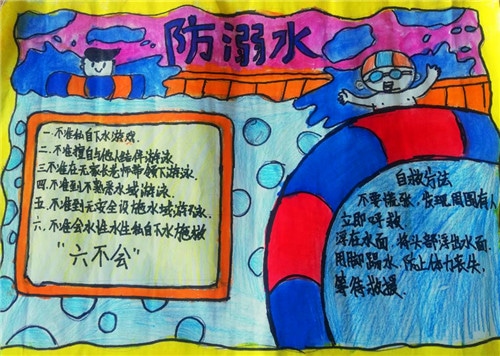 防溺水
一.不准私自下水游戏.
二.不准擅自与他人结伴游泳.
三.不准在无家长老师带领下游泳.
四.不准到不熟悉水域游泳.
五.不准到无安全设施水域游泳.
六.不准会水性水生私自下水施救
“六不会”
自救方法
不要慌张,发现周围有人
立即呼救
浮在水面,将头部浮出水面
用脚踢水,防止体力丧失,
等待救援.